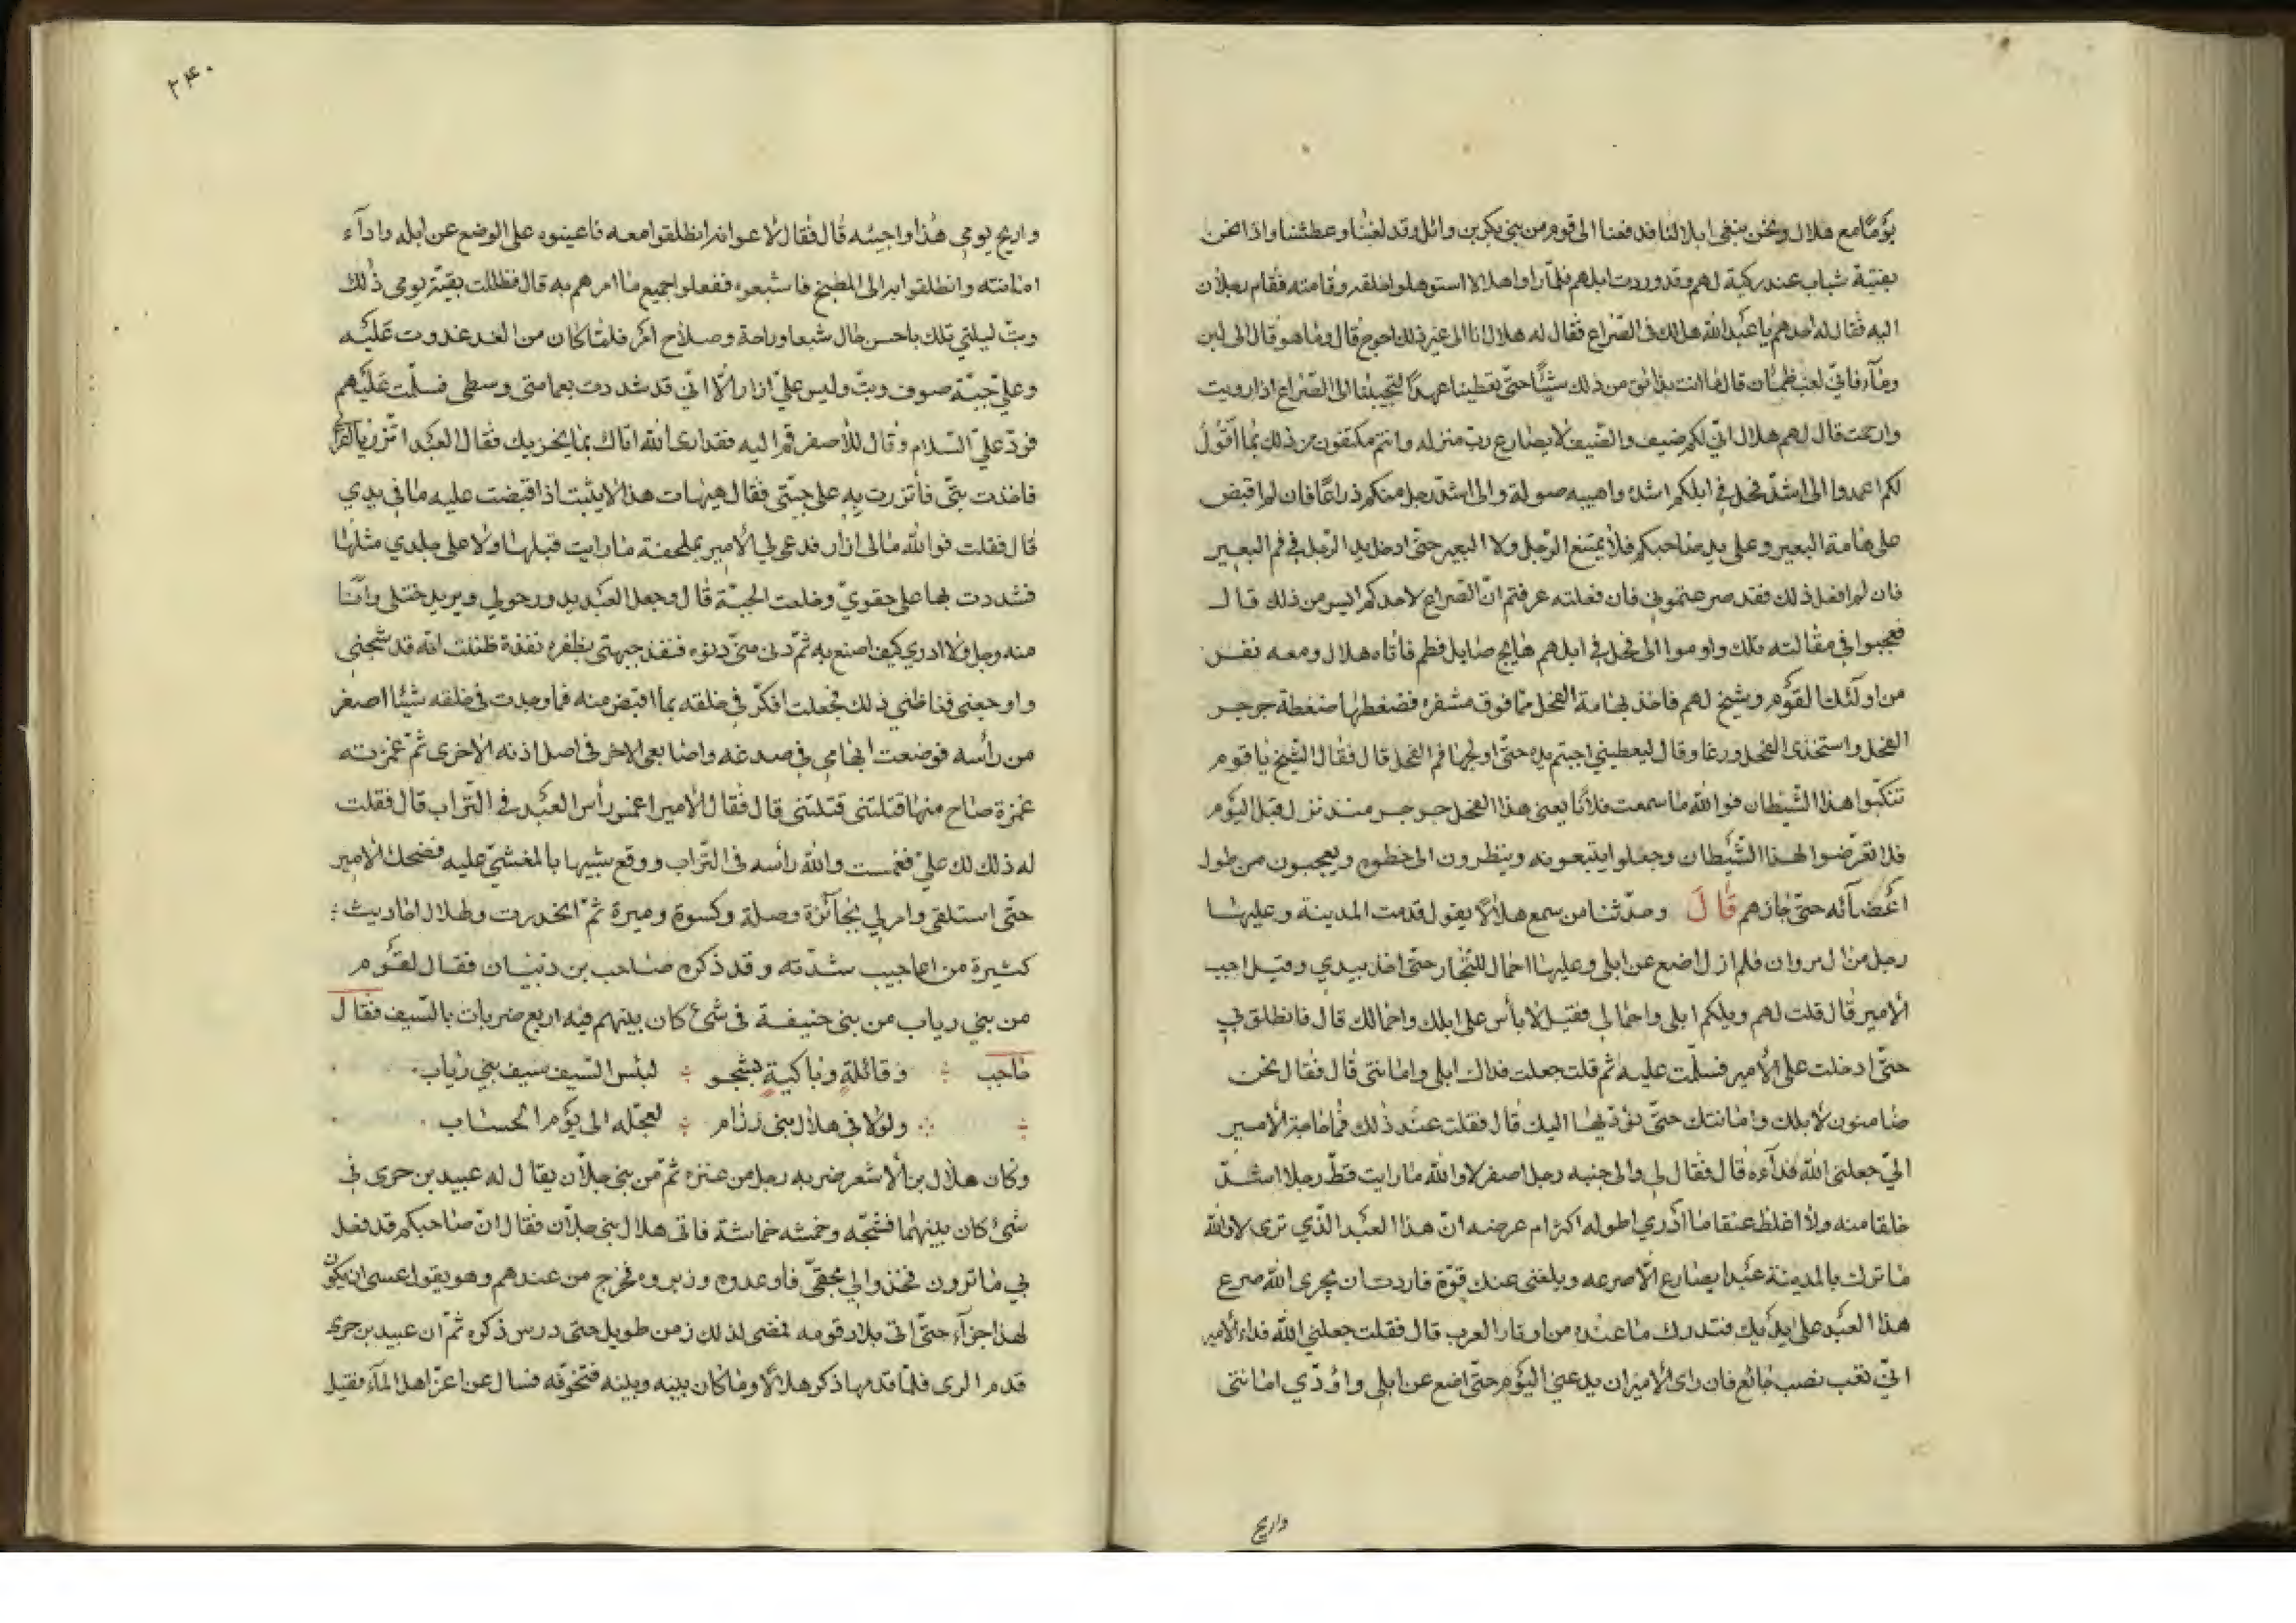 يومًا مع هلال ونحن نبغى ابلا لنا فدفعنا الى قوم من بني بكر بن وائل وقد لغبنا وعطشنا واذا نحن
بفتية شباب عند ركية لهم وقد وردت ابلهم فلمّا راوا هلالا استوهلوا خلقه وقامته فقام رجلان
اليه فقال له احدهم يا عبد الله هل لك في الصّراع فقال له هلال انا الى غير ذلك احوج قال وما هو قال الى لبن
وماء فاني لغب ظمئان قال ما انت بذائق من ذلك شيئًا حتّى تعطينا عهدًا لتجيبنا الى الصّراع اذا رويت
وارحت قال لهم هلال انّي لكم ضيف والضّيف لا يصارع ربّ منزله وانتم مكتفون من ذلك بما اقول
لكم اعمدوا الى اشدّ فحل في ابلكم اشده واهيبه صولة والى اشدّ رجل منكم ذراعًا فان لم اقبض
على هامة البعير وعلى يد صاحبكم فلا يمتنع الرّجل ولا البعير حتّى ادخل يد الرّجل في فم البعير
فان لم افعل ذلك فقد صرعتموني فان فعلته عرفتم انّ الصّراع لاحدكم ايسر من ذلك قال
فعجبوا في مقالته تلك واوموا الى فحل في ابلهم هايج صايل فطم فاتاه هلال ومعه نفر
من اولئك القوم وشيخ لهم فاخذ بهامة الفحل ممّا فوق مشفره فضغطها ضغطة جرجر
الفحل واستخذى الفحل ورغا وقال ليعطيني اجبتم يده حتّى اولجها فم الفحل قال فقال الشّيخ يا قوم
تنكّبوا هذا الشّيطان فوالله ما سمعت فلانًا يعني هذا الفحل جرجر منذ نزل قبل اليوم
فلا تعرّضوا لهذا الشّيطان وجعلوا يتبعونه وينظرون الى خطوه ويعجبون من طول
اعضائه حتّى جازهم قال وحدّثنا من سمع هلالًا يقول قدمت المدينة وعليها
رجل من ال مروان فلم ازل اضع عن ابلي وعليها احمال للتجّار حتّى اخذ بيدي وقيل اجب
الأمير قال قلت لهم ويلكم ابلي واحمالي فقيل لا بأس على ابلك واحمالك قال فانطلق بي
حتّى ادخلت على الأمير فسلّمت عليه ثم قلت جعلت فداك ابلي وامانتي قال فقال نحن
ضامنون لابلك وامانتك حتّى نؤدّيها اليك قال فقلت عند ذلك فما حاجة الأمير
اليّ جعلني الله فداءه قال فقال لي والى جنبه رجل اصفر لا والله ما رايت قطّ رجلا اشدّ
خلقا منه ولا اغلظ عنقا ما ادري اطوله اكثر ام عرضه انّ هذا العبد الّذي ترى لا والله
ما ترك بالمدينة عبدا يصارع الّا صرعه وبلغني عنك قوّة فاردت ان يجري الله صرع
هذا العبد على يديك فتدرك ما عنده من اوتار العرب قال فقلت جعلني الله فداء الأمير
انيّ تغب نصب جائع فان راى الأمير ان يدعني اليوم حتّى اضع عن ابلي واؤدّي امانتي
واريح
۲۴۰
واريح يومي هذا واجيئه قال فقال لاعوانه انطلقوا معه فاعينوه على الوضع عن ابله واداء
امانته وانطلقوا به الى المطبخ فاشبعوه ففعلوا جميع ما امرهم به قال فظللت بقيّة يومي ذلك
وبتّ ليلتي تلك باحسن حال شبعا وراحة وصلاح امر فلما كان من الغد غدوت عليه
وعليّ جبّة صوف وبتّ وليس عليّ ازار الّا انّي قد شددت بعمامتي وسطي فسلّمت عليهم
فردّ عليّ السّلام وقال للأصفر قم اليه فقد ارى الله اتاك بما يخزيك فقال العبد اتّزر يا اعرابيّ
فاخذت بتّي فاتزرت به على جبّتي فقال هيهات هذا لا يثبت اذا قبضت عليه ما في يدي
قال فقلت فوالله ما لي ازار فدعى لي الأمير بملحفة ما رايت قبلها ولا على جلدي مثلها
فشددت بها على حقويّ وخلعت الجبّة قال وجعل العبد يدور حولي ويريد ختلي وانا
منه وجل ولا ادري كيف اصنع به ثمّ دنى منّي دنوه فنقذ جبهتي بظفره نقذة ظننت انّه قد شجّني
واوجعني فغاظني ذلك فجعلت افكّر في خلقه بما اقبض منه فما وجدت في خلقه شيئا اصغر
من رأسه فوضعت ابهامي في صدغه واصابعي الاخر في اصل اذنه الاخرى ثمّ غمزته
غمزة صاح منها قتلتني قتلتني قال فقال الأمير اغمس رأس العبد في التّراب قال فقلت
له ذلك لك عليّ فغمست والله رأسه في التّراب ووقع شبيها بالمغشيّ عليه فضحك الأمير
حتّى استلقى وامر لي بجائزة وصلة وكسوة وميرة ثمّ انحدرت ولهلال احاديث
كثيرة من اعاجيب شدّته وقد ذكره صاحب بن ذنبيان فقال لقوم
من بني رياب من بني حنيفة في شئ كان بينهم فيه اربع ضربات بالسّيف فقال
حاجب ∴ وقائلةٍ وباكيةٍ بشجو ∴ لبئس السّيف سيف بني رياب
∴ ∴ ولولا في هلال بني رزام ∴ لعجّله الى يوم الحساب
وكان هلال بن الأشعر ضربه رجل من عنزه ثمّ من بني جلّان يقال له عبيد بن جرى في
شئ كان بينهما فشجّه وخمشه خماشة فاتى هلال بني جلّان فقال انّ صاحبكم قد فعل
بي ما ترون فخذوا لي بحقّي فاوعدوه وزبروه فخرج من عندهم وهو يقول عسى ان يكون
لهذا جزاء حتّى اتى بلاد قومه فمضى لذلك زمن طويل حتى درس ذكره ثمّ ان عبيد بن جرى
قدم الوى فلمّا قدمها ذكر هلالًا وما كان بينه وبينه فتخوّفه فسال عن اعزّ اهل الماء فقيل